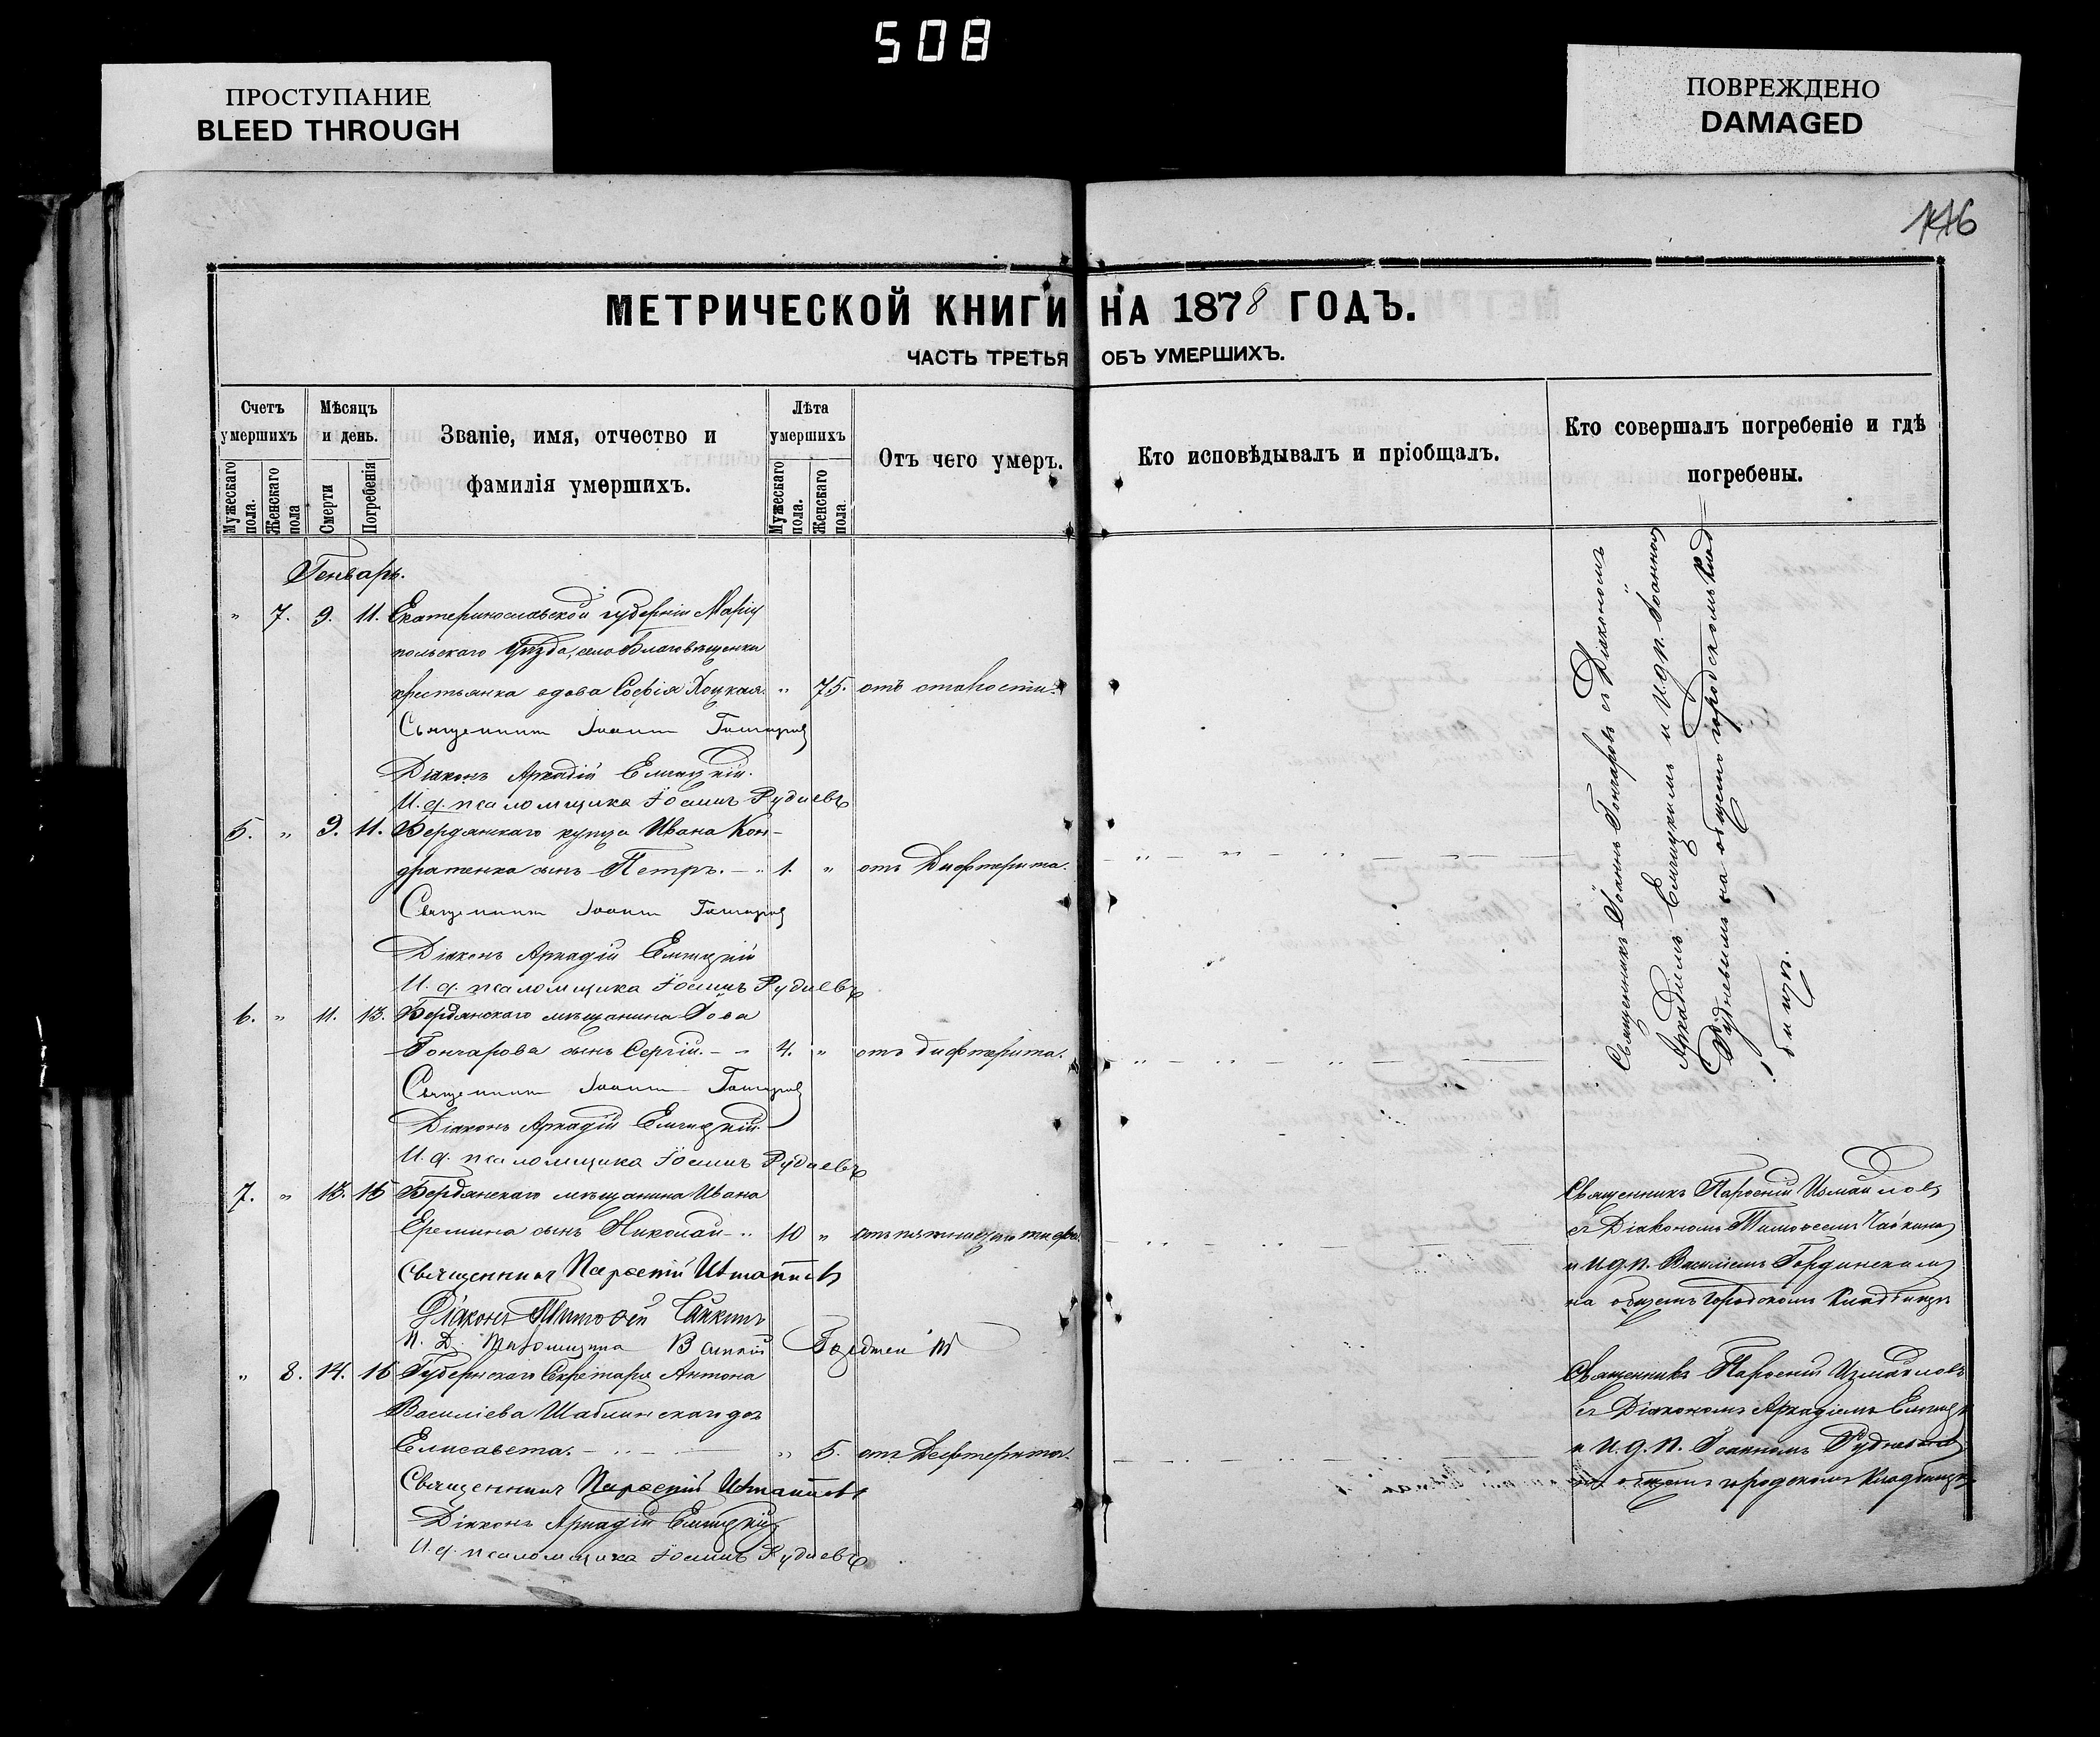 508
ПРОСТУПАНИЕ
BLEED THROUGH
ПОВРЕЖДЕНО
DAMAGED
МЕТРИЧЕСКОЙ КНИГИ НА 1878 ГОДЪ.
ЧАСТЬ ТРЕТЬЯ ОБЪ УМЕРШИХЪ.
Счетъ умершихъ
Мужескаго пола.
Женскаго пола
Мѣсяцъ и день.
Смерти
Погребенія
Званіе, имя, отчество и
фамилія умершихъ.
Лѣта умершихъ
Мужескаго пола.
Женскаго пола
Отъ чего умеръ.
Кто исповѣдывалъ и пріобщалъ.
Кто совершалъ погребеніе и гдѣ
погребены.
Генварь.
" 7. 9. 11. Екатеринославской губерніи Маріу
польскаго Уѣзда, село Благовѣщенки
крестьянка вдова Софія " 75. отъ старости.
Священникъ Іоаннъ Гончаровъ
Діаконъ Аркадій Елчицкій.
И. д. псаломщика Іоаннъ Рудневъ
5. " 9. 11. Бердянскаго купца Ивана Кон-
дратенка сынъ Петръ. 1. " отъ Дифтерита.
Священникъ Іоаннъ Гончаровъ
Діаконъ Аркадій Елчицкій
И. д. псаломщика Іоаннъ Рудневъ
6. " 11. 13. Бердянскаго мѣщанина
Гончарова сынъ Сергій. 4. " отъ дифтерита.
Священникъ Іоаннъ Гончаровъ
Діаконъ Аркадій Елчицкій.
И. д. псаломщика Іоаннъ Рудневъ
Священникъ Іоаннъ Гончаровъ съ Діакономъ
Аркадіемъ Елчицкимъ и И. д. п. Іоанномъ
Рудневымъ на общемъ городскомъ клад-
бищѣ.
7. " 13. 15 Бердянскаго мѣщанина Ивана
Еремина сынъ Николай 10 " отъ тифа.
Священникъ Парѳеній Измаиловъ
Діаконъ Тимоѳей Чайкинъ
И. Д. Псаломщика Василій
Священникъ Парѳеній Измаиловъ
съ Діакономъ Тимоѳеемъ Чайкинымъ
и И. д. п. Василіемъ
на общемъ городскомъ кладбищѣ
" 8. 14. 16 Губернскаго Секретаря Антона
Василіева Шаблинскаго дочь
Елисавета. " 5. отъ Дифтерита.
Священникъ Парѳеній Измаиловъ
Діаконъ Аркадій Елчицкій
И. д. псаломщика Іоаннъ Рудневъ
Священникъ Парѳеній Измаиловъ
съ Діакономъ Аркадіемъ
и И. д. п. Іоанномъ Рудневымъ
на общемъ городскомъ кладбищѣ